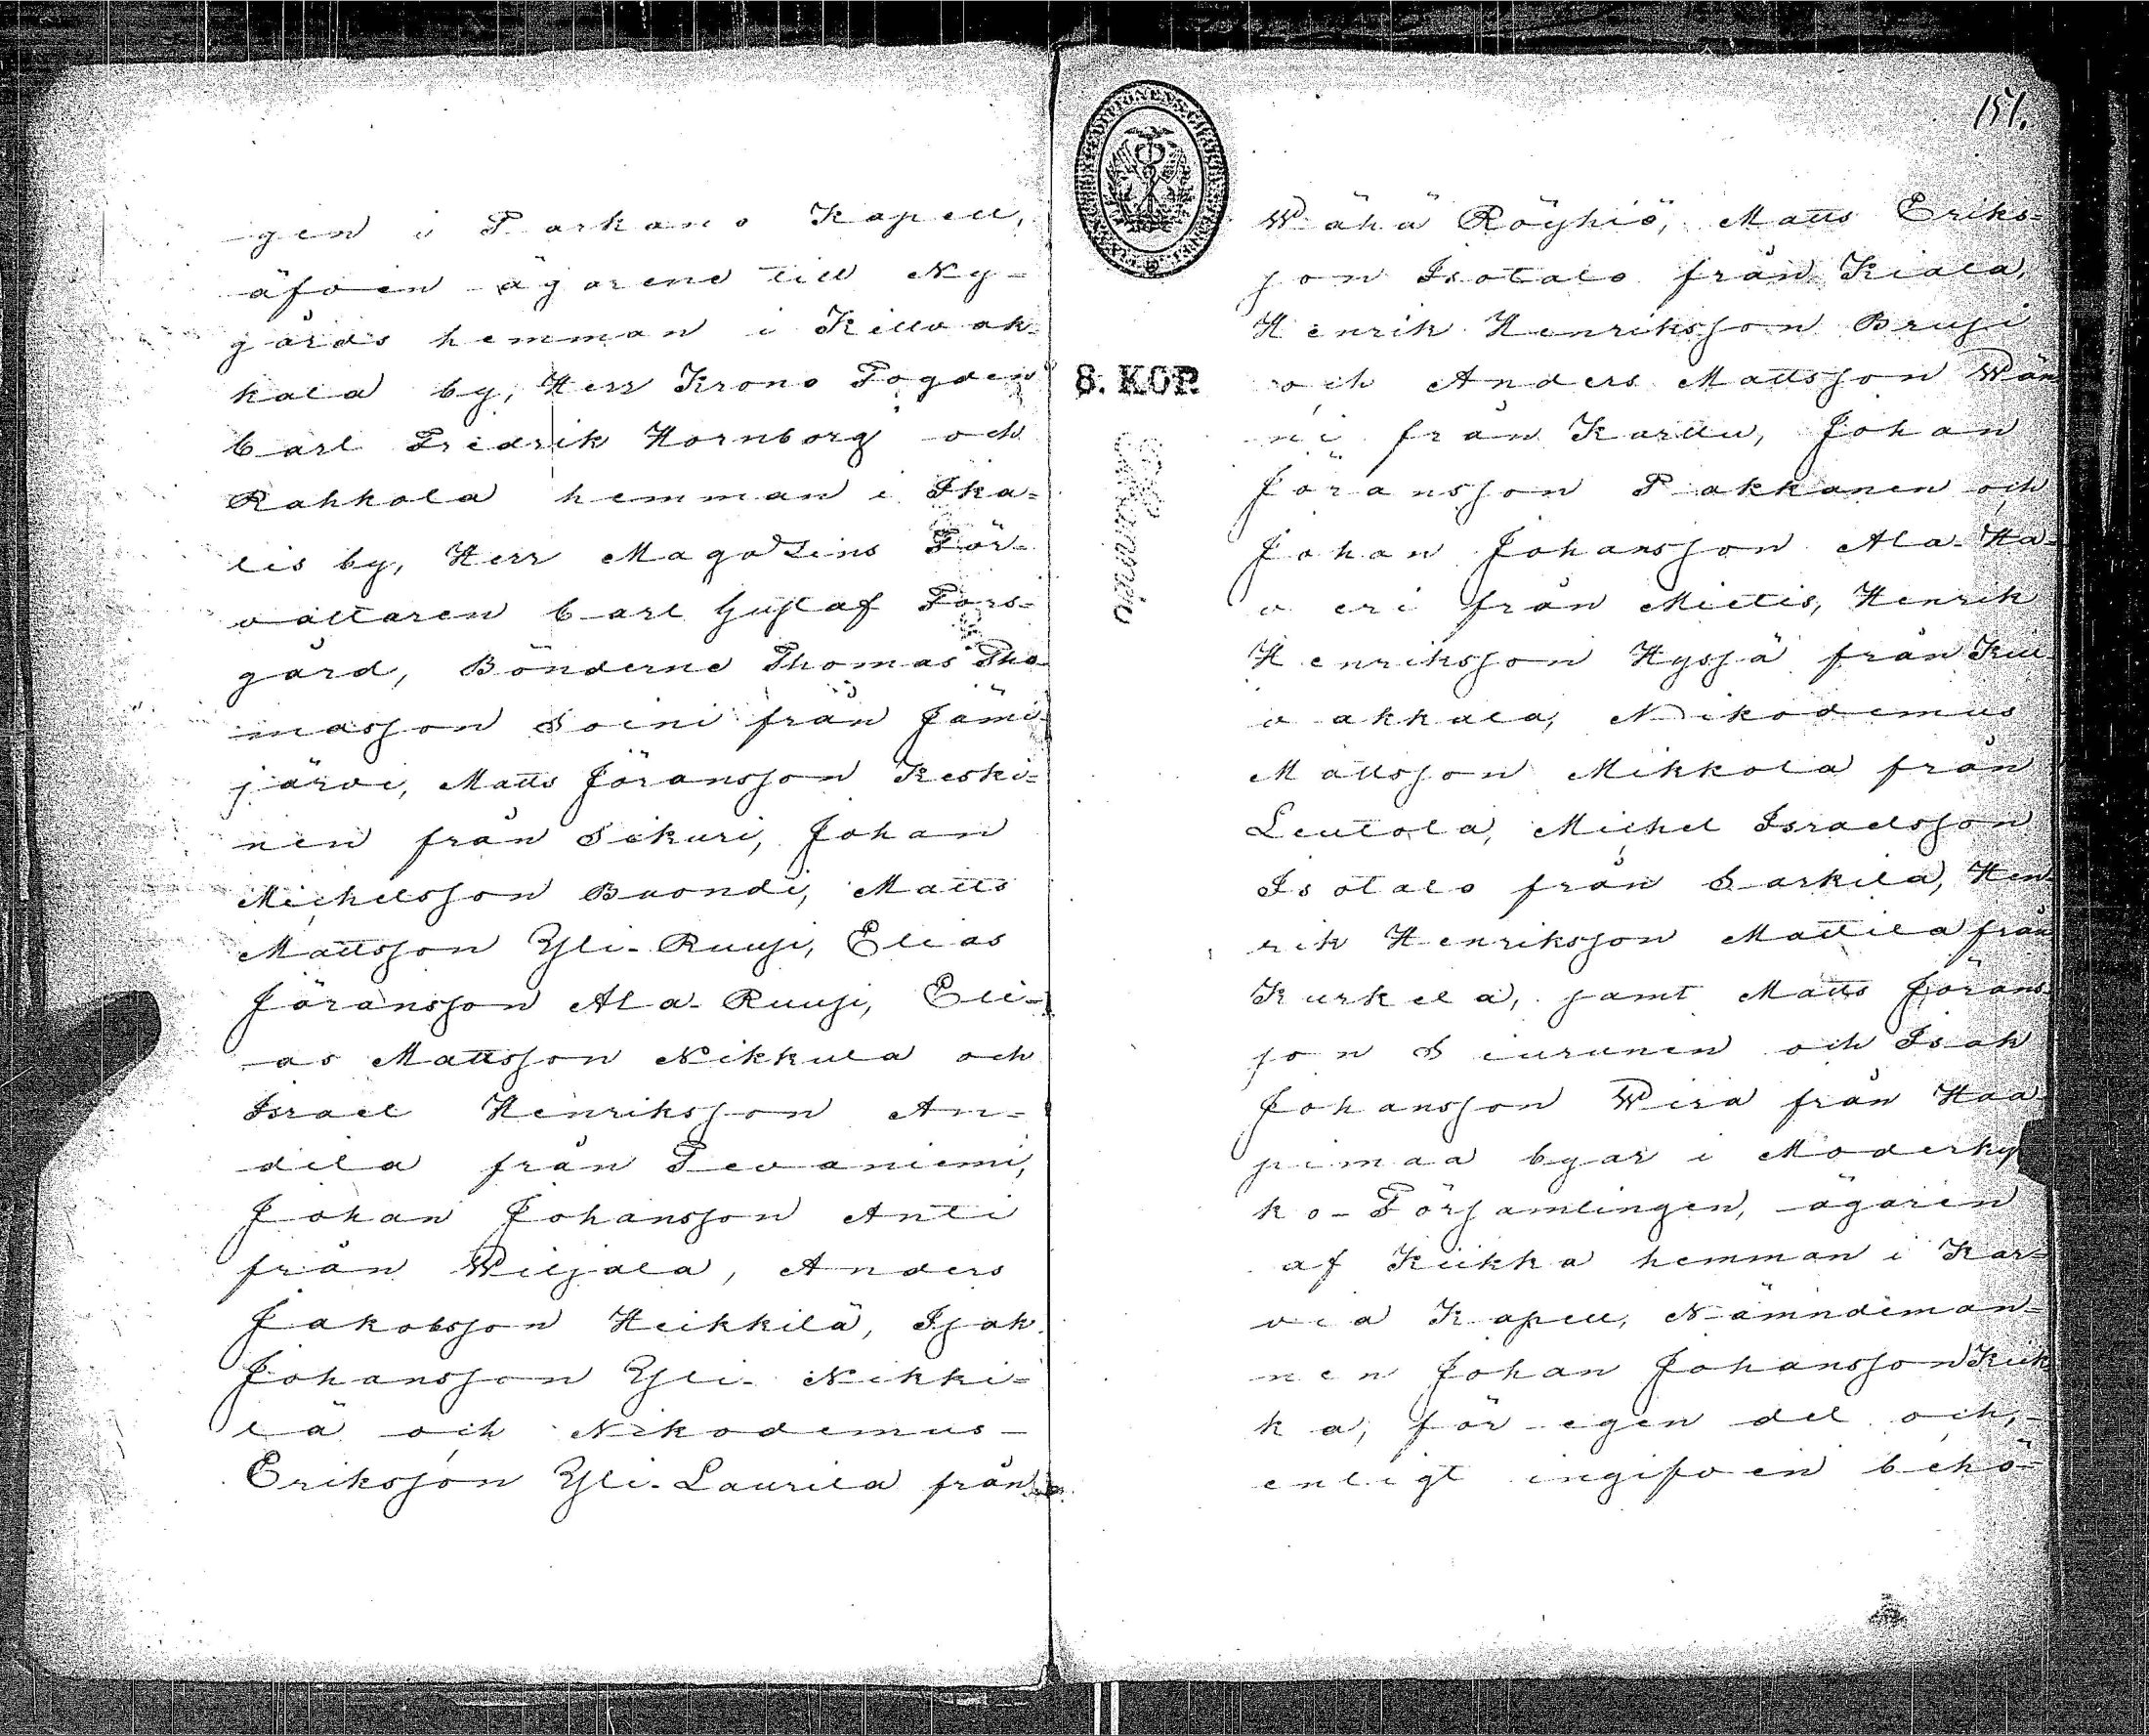 gen i Parkano Kapell,
äfven ägarene till Ny-
gårds hemman i Killvak-
kala by, Herr Krono Fogden
Carl Fredrik Hornborg och
Rahkola hemman i Ika-
lis by, Herr Magazins För-
valtaren Carl Gustaf Fors-
gård, Bönderne Thomas Tho-
masson Soini från Jämi-
järvi, Matts Jöransson Keski-
nen från Sikuri, Johan
Michelsson Buondi, Matts
Mattsson Yli-Ruusi, Elias
Jöransson Ala-Ruusi, Eli-
as Mattsson Nikkula och
Israel Henriksson An-
dila från Tevaniemi,
Johan Johansson Anti
från Wiljala, Anders
Jakobsson Heikkilä, Isak
Johansson Yli-Nikki-
lä och Nikodemus
Eriksson Yli-Laurila från
151.
8. KOP.
Wähä Röyhiö, Matts Eriks-
son Isotalo från Kiala,
Henrik Henriksson Brusi
och Anders Mattsson Wän-
ni från Karttu, Johan
Jöransson Pakkanen och
Johan Johansson Ala-Ha-
veri från Miettis, Henrik
Henriksson Hyssä från Kill-
vakkala, Nikodemus
Mattsson Mikkola från
Leutola, Michel Israelsson
Isotalo från Sarkila, Hen-
rik Henriksson Mattila från
Kurkela, samt Matts Jörans-
son Siurunen och Isak
Johansson Wira från Haa-
pimaa byar i Moderkyr-
ko-Församlingen, ägaren
af Kiikka hemman i Kar-
via Kapell, Nämndeman-
nen Johan Johansson Kiik-
ka, för egen del och,
enligt ingifven behö-